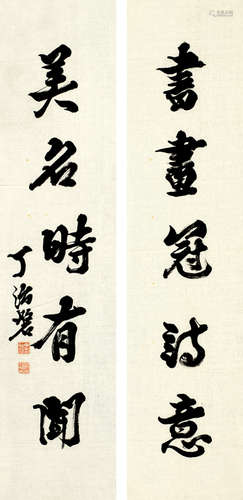 書畫冠詩意
美名時有聞
丁治磐